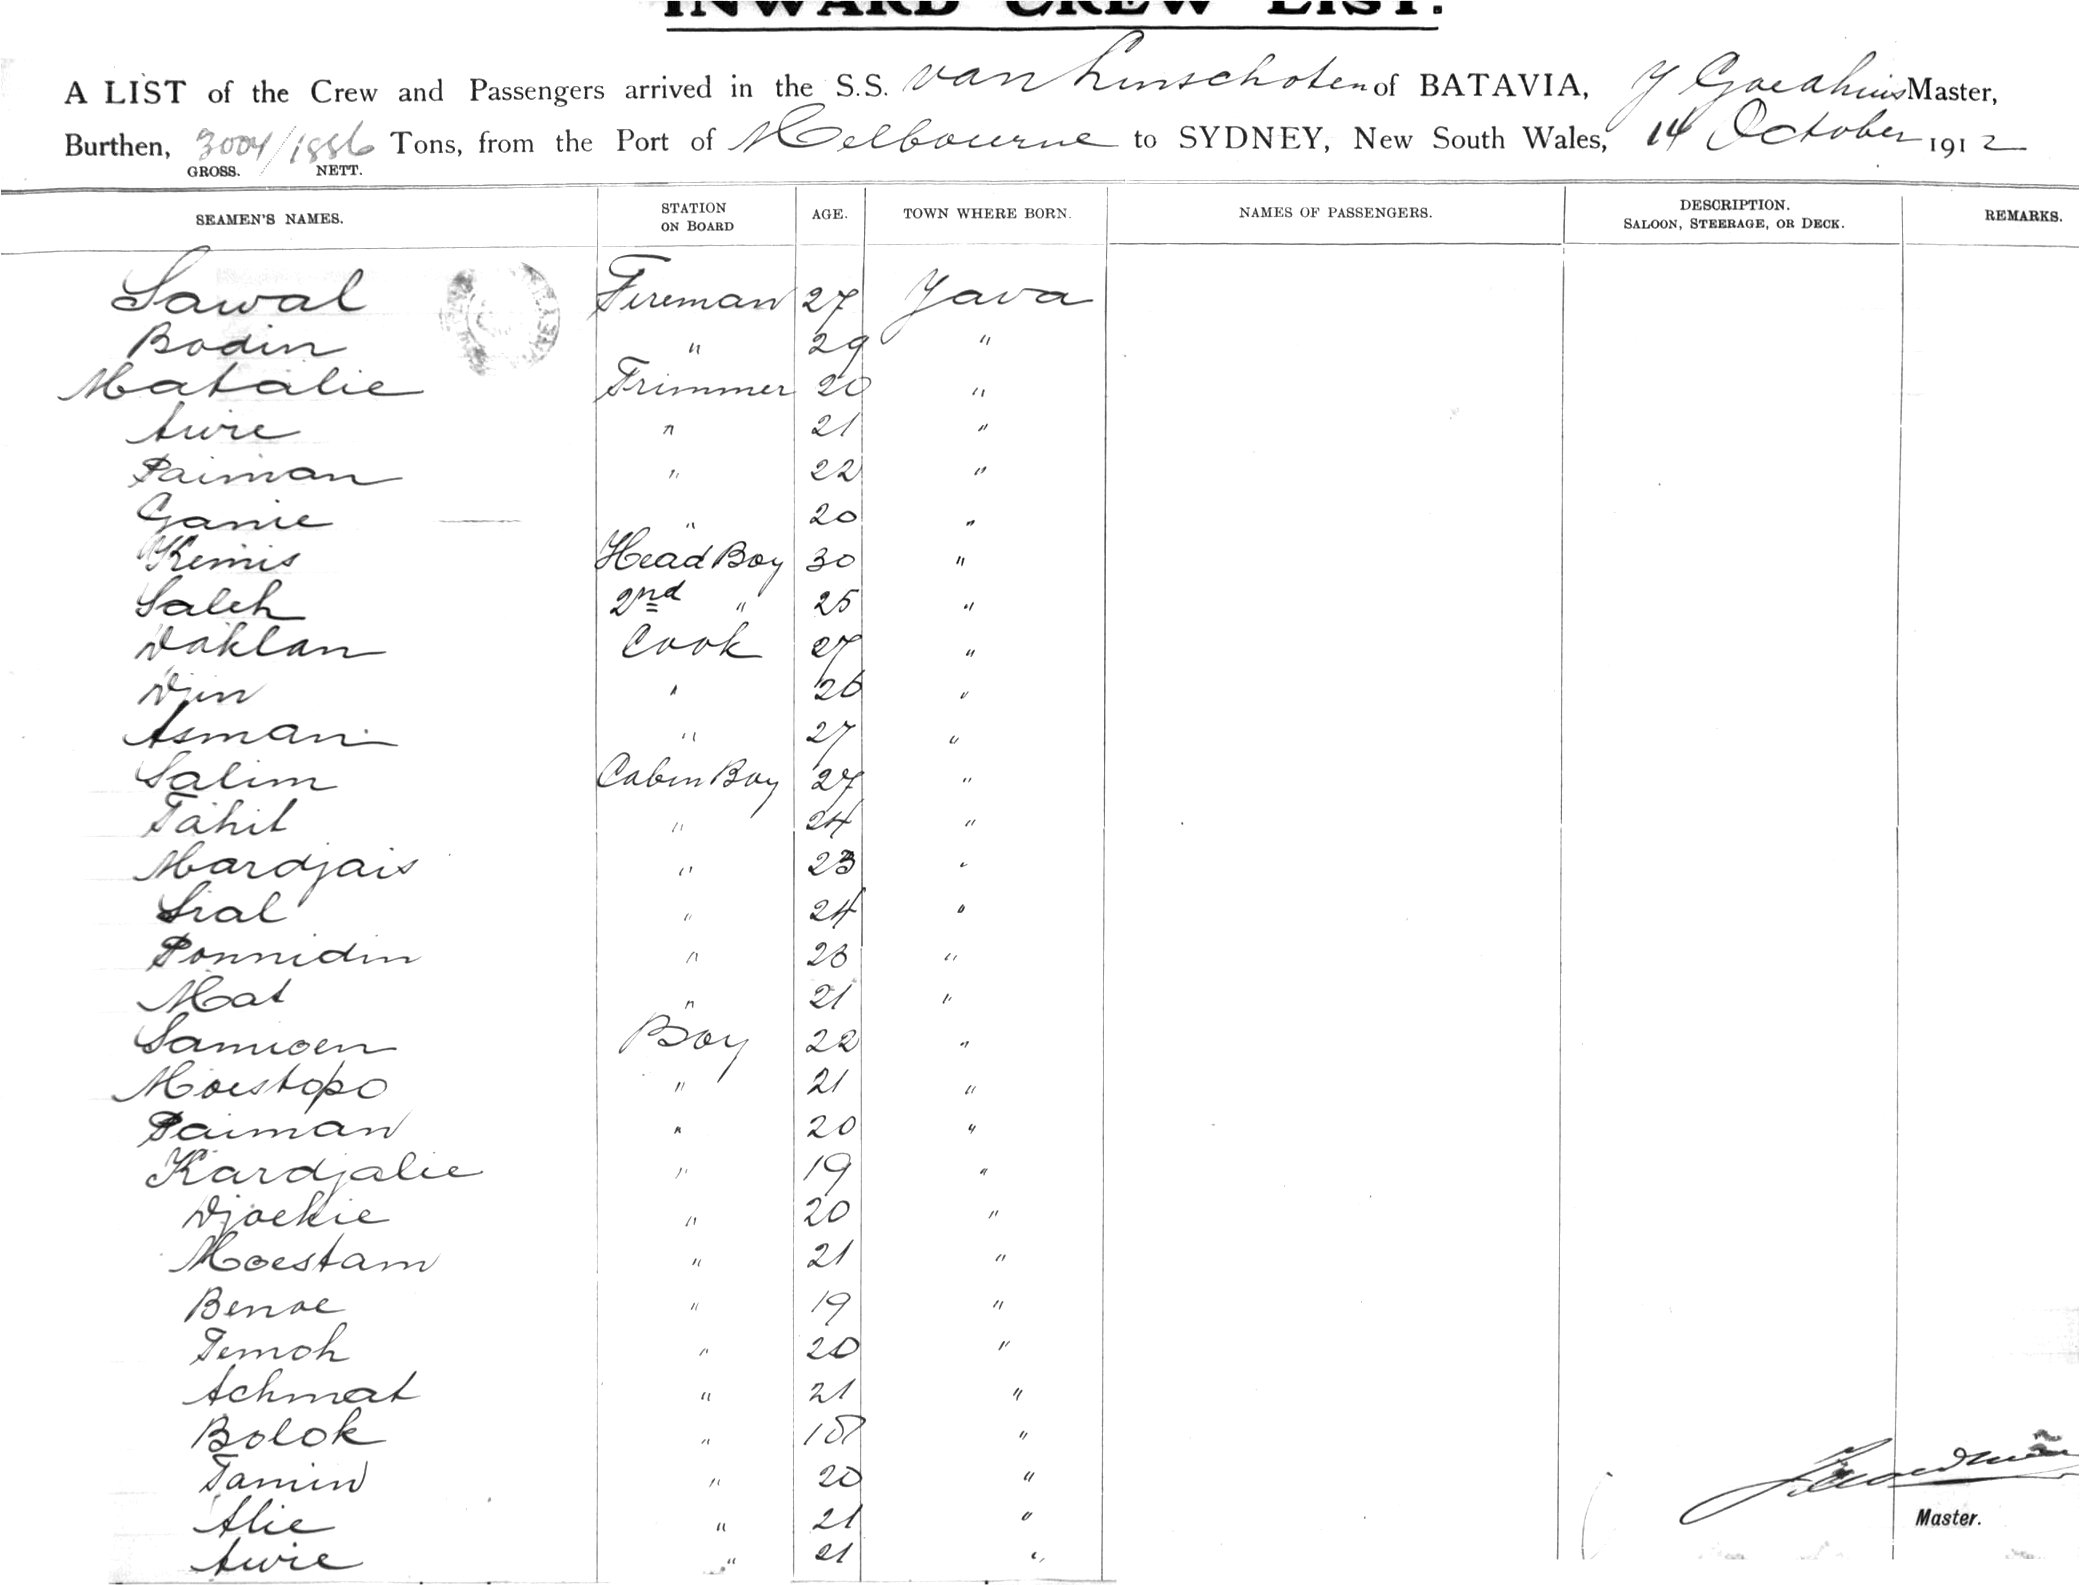 INWARD CREW LIST.
A LIST of the Crew and Passengers arrived in the S.S. van Linschoten of BATAVIA, Master,
Burthen, 3004/1886 Tons, from the Port of Melbourne to SYDNEY, New South Wales, 14 October 1912
GROSS. NETT.
SEAMEN'S NAMES. STATION ON BOARD AGE. TOWN WHERE BORN. NAMES OF PASSENGERS. DESCRIPTION. SALOON, STEERAGE, OR DECK. REMARKS.
Sawal Fireman 27 Java
Bodin " 29 "
Matalie Trimmer 20 "
Awie " 21 "
Paiman " 22 "
Ganie " 20 "
Kemis Head Boy 30 "
Saleh 2nd " 25 "
Daklan Cook 27 "
Djin " 26 "
Asman " 27 "
Salim Cabin Boy 27 "
Tahil " 24 "
Mardjais " 23 "
Sral " 24 "
Ponnidin " 23 "
Mat " 21 "
Samioen Boy 22 "
Moestopo " 21 "
Paiman " 20 "
Kardjalie " 19 "
Djoekie " 20 "
Moestam " 21 "
Benoe " 19 "
Temoh " 20 "
Achmat " 21 "
Bolok " 18 "
Tamin " 20 "
Alie " 21 "
Awie " 21 "
Master.